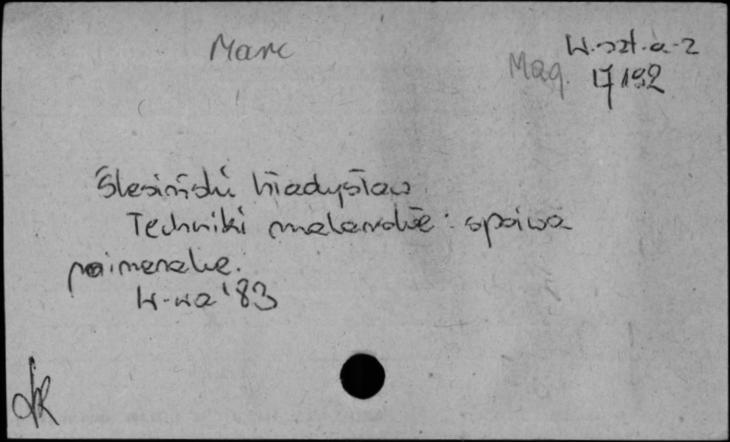 Marc
W.szt.a-2
Mag. 17192
Ślesiński Władysław
Techniki malarskie: spoiwa
mineralne.
W-wa '83